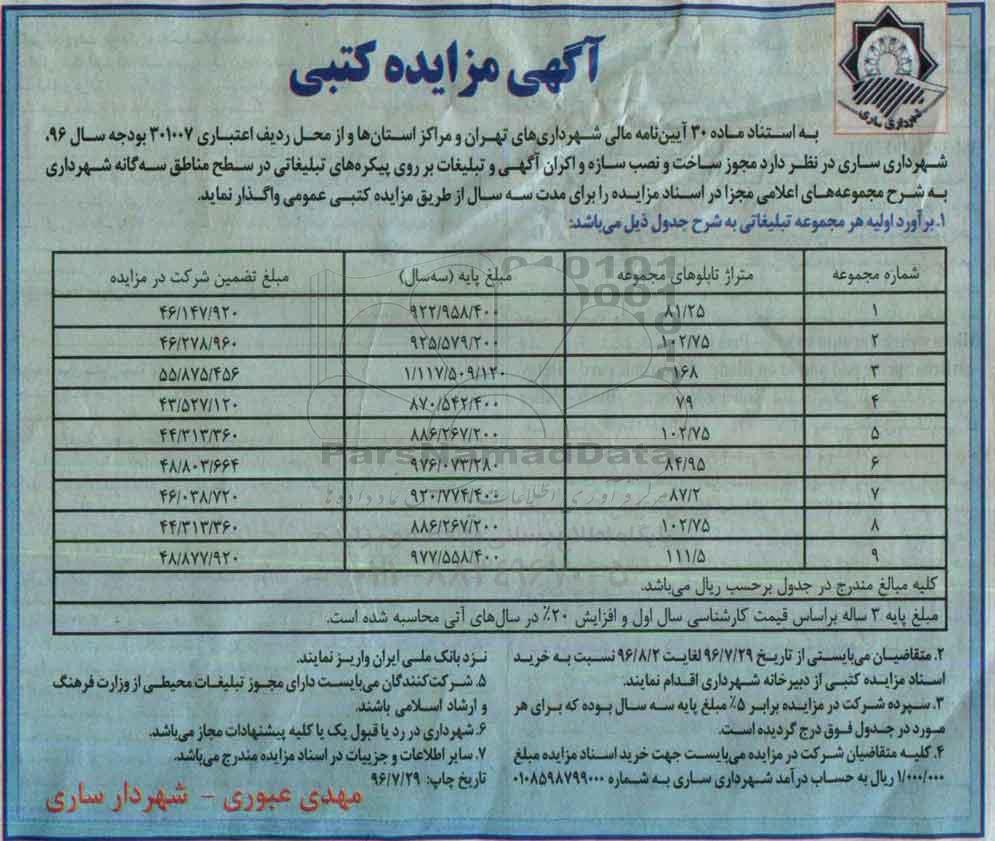 شهرداری ساری
آگهی مزایده کتبی
به استناد ماده ۳۰ آیین‌نامه مالی شهرداری‌های تهران و مراکز استان‌ها و از محل ردیف اعتباری ۳۰۱۰۰۷ بودجه سال ۹۶،
شهرداری ساری در نظر دارد مجوز ساخت و نصب سازه و اکران آگهی و تبلیغات بر روی پیکره‌های تبلیغاتی در سطح مناطق سه‌گانه شهرداری
به شرح مجموعه‌های اعلامی مجزا در اسناد مزایده را برای مدت سه سال از طریق مزایده کتبی عمومی واگذار نماید.
۱. برآورد اولیه هر مجموعه تبلیغاتی به شرح جدول ذیل می‌باشد:
شماره مجموعه متراژ تابلوهای مجموعه مبلغ پایه (سه‌سال) مبلغ تضمین شرکت در مزایده
۱ ۸۱/۲۵ ۹۲۲/۹۵۸/۴۰۰ ۴۶/۱۴۷/۹۲۰
۲ ۱۰۲/۷۵ ۹۲۵/۵۷۹/۲۰۰ ۴۶/۲۷۸/۹۶۰
۳ ۱۶۸ ۱/۱۱۷/۵۰۹/۱۲۰ ۵۵/۸۷۵/۴۵۶
۴ ۷۹ ۸۷۰/۵۴۲/۴۰۰ ۴۳/۵۲۷/۱۲۰
۵ ۱۰۲/۷۵ ۸۸۶/۲۶۷/۲۰۰ ۴۴/۳۱۳/۳۶۰
۶ ۸۴/۹۵ ۹۷۶/۰۷۳/۲۸۰ ۴۸/۸۰۳/۶۶۴
۷ ۸۷/۲ ۹۲۰/۷۷۴/۴۰۰ ۴۶/۰۳۸/۷۲۰
۸ ۱۰۲/۷۵ ۸۸۶/۲۶۷/۲۰۰ ۴۴/۳۱۳/۳۶۰
۹ ۱۱۱/۵ ۹۷۷/۵۵۸/۴۰۰ ۴۸/۸۷۷/۹۲۰
ParsNamadData
کلیه مبالغ مندرج در جدول برحسب ریال می‌باشد.
مبلغ پایه ۳ ساله براساس قیمت کارشناسی سال اول و افزایش ۲۰٪ در سال‌های آتی محاسبه شده است.
۲. متقاضیان می‌بایستی از تاریخ ۹۶/۷/۲۹ لغایت ۹۶/۸/۲ نسبت به خرید
اسناد مزایده کتبی از دبیرخانه شهرداری اقدام نمایند.
۳. سپرده شرکت در مزایده برابر ۵٪ مبلغ پایه سه سال بوده که برای هر
مورد در جدول فوق درج گردیده است.
۴. کلیه متقاضیان شرکت در مزایده می‌بایست جهت خرید اسناد مزایده مبلغ
۱/۰۰۰/۰۰۰ ریال به حساب درآمد شهرداری ساری به شماره ۰۱۰۸۵۹۸۷۹۹۰۰۰
نزد بانک ملی ایران واریز نمایند.
۵. شرکت‌کنندگان می‌بایست دارای مجوز تبلیغات محیطی از وزارت فرهنگ
و ارشاد اسلامی باشند.
۶. شهرداری در رد یا قبول یک یا کلیه پیشنهادات مجاز می‌باشد.
۷. سایر اطلاعات و جزییات در اسناد مزایده مندرج می‌باشد.
تاریخ چاپ: ۹۶/۷/۲۹
مهدی عبوری - شهردار ساری